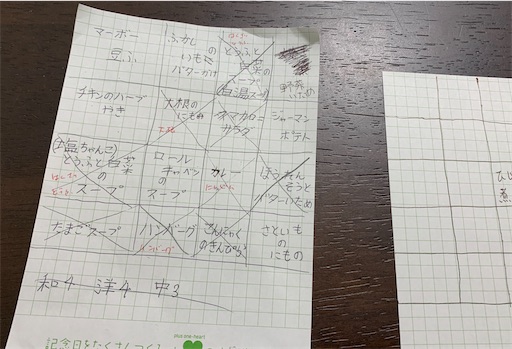 マーボー
豆ふ
ふかし
の
いもに
バターかけ
とうふと
白菜の
スープ
(白湯スープ)
野菜
いため
チキンのハーブ
やき
大根の
にもの
大根
オマカロニ
サラダ
ジャーマン
ポテト
(塩ちゃんこ)
とうふと白菜
の
スープ
ロール
キャベツ
の
スープ
カレー
にんじん
ほうれん
そうと
バターいため
たまごスープ
ハンバーグ
ハンバーグ
こんにゃく
のきんぴら
さといも
の
にもの
和4 洋4 中3
記念日をたくさんつくろ
煮